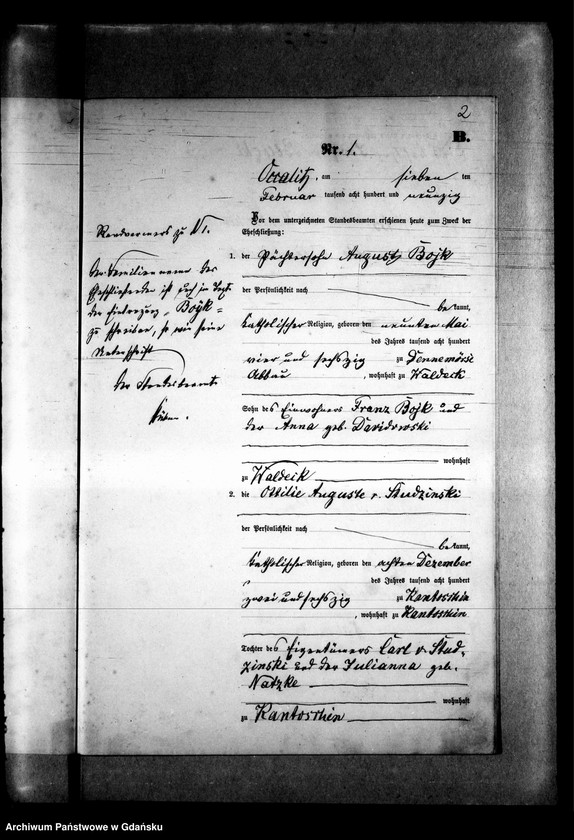 2
B.
Nr. 1.
Occalitz, am sieben ten
Februar tausend acht hundert und neunzig
Vor dem unterzeichneten Standesbeamten erschienen heute zum Zweck der
Eheschließung:
1. der Pächtersohn August Bojk
der Persönlichkeit nach
be kannt,
katholischer Religion, geboren den neunten Mai
des Jahres tausend acht hundert
vier und sechszig zu Dennemörse
Abbau, wohnhaft zu Waldeck
Sohn des Einwohners Franz Bojk und
der Anna geb. Davidowski
wohnhaft
zu Waldeck
2. die Ottilie Auguste v. Studzinski
der Persönlichkeit nach
be kannt,
katholischer Religion, geboren den achten Dezember
des Jahres tausend acht hundert
zwei und sechszig zu Kantoschin
, wohnhaft zu Kantoschin
Tochter des Eigentümers Carl v. Stud-
zinski und der Julianna geb.
Natzke
wohnhaft
zu Kantoschin
Randvermerk zu N 1.
Der Familienname des
Eheschließenden ist auch im Text
der Eintragung "Bojk"
zu schreiben, so wie seine
Unterschrift
Der Standesbeamte
Archiwum Państwowe w Gdańsku